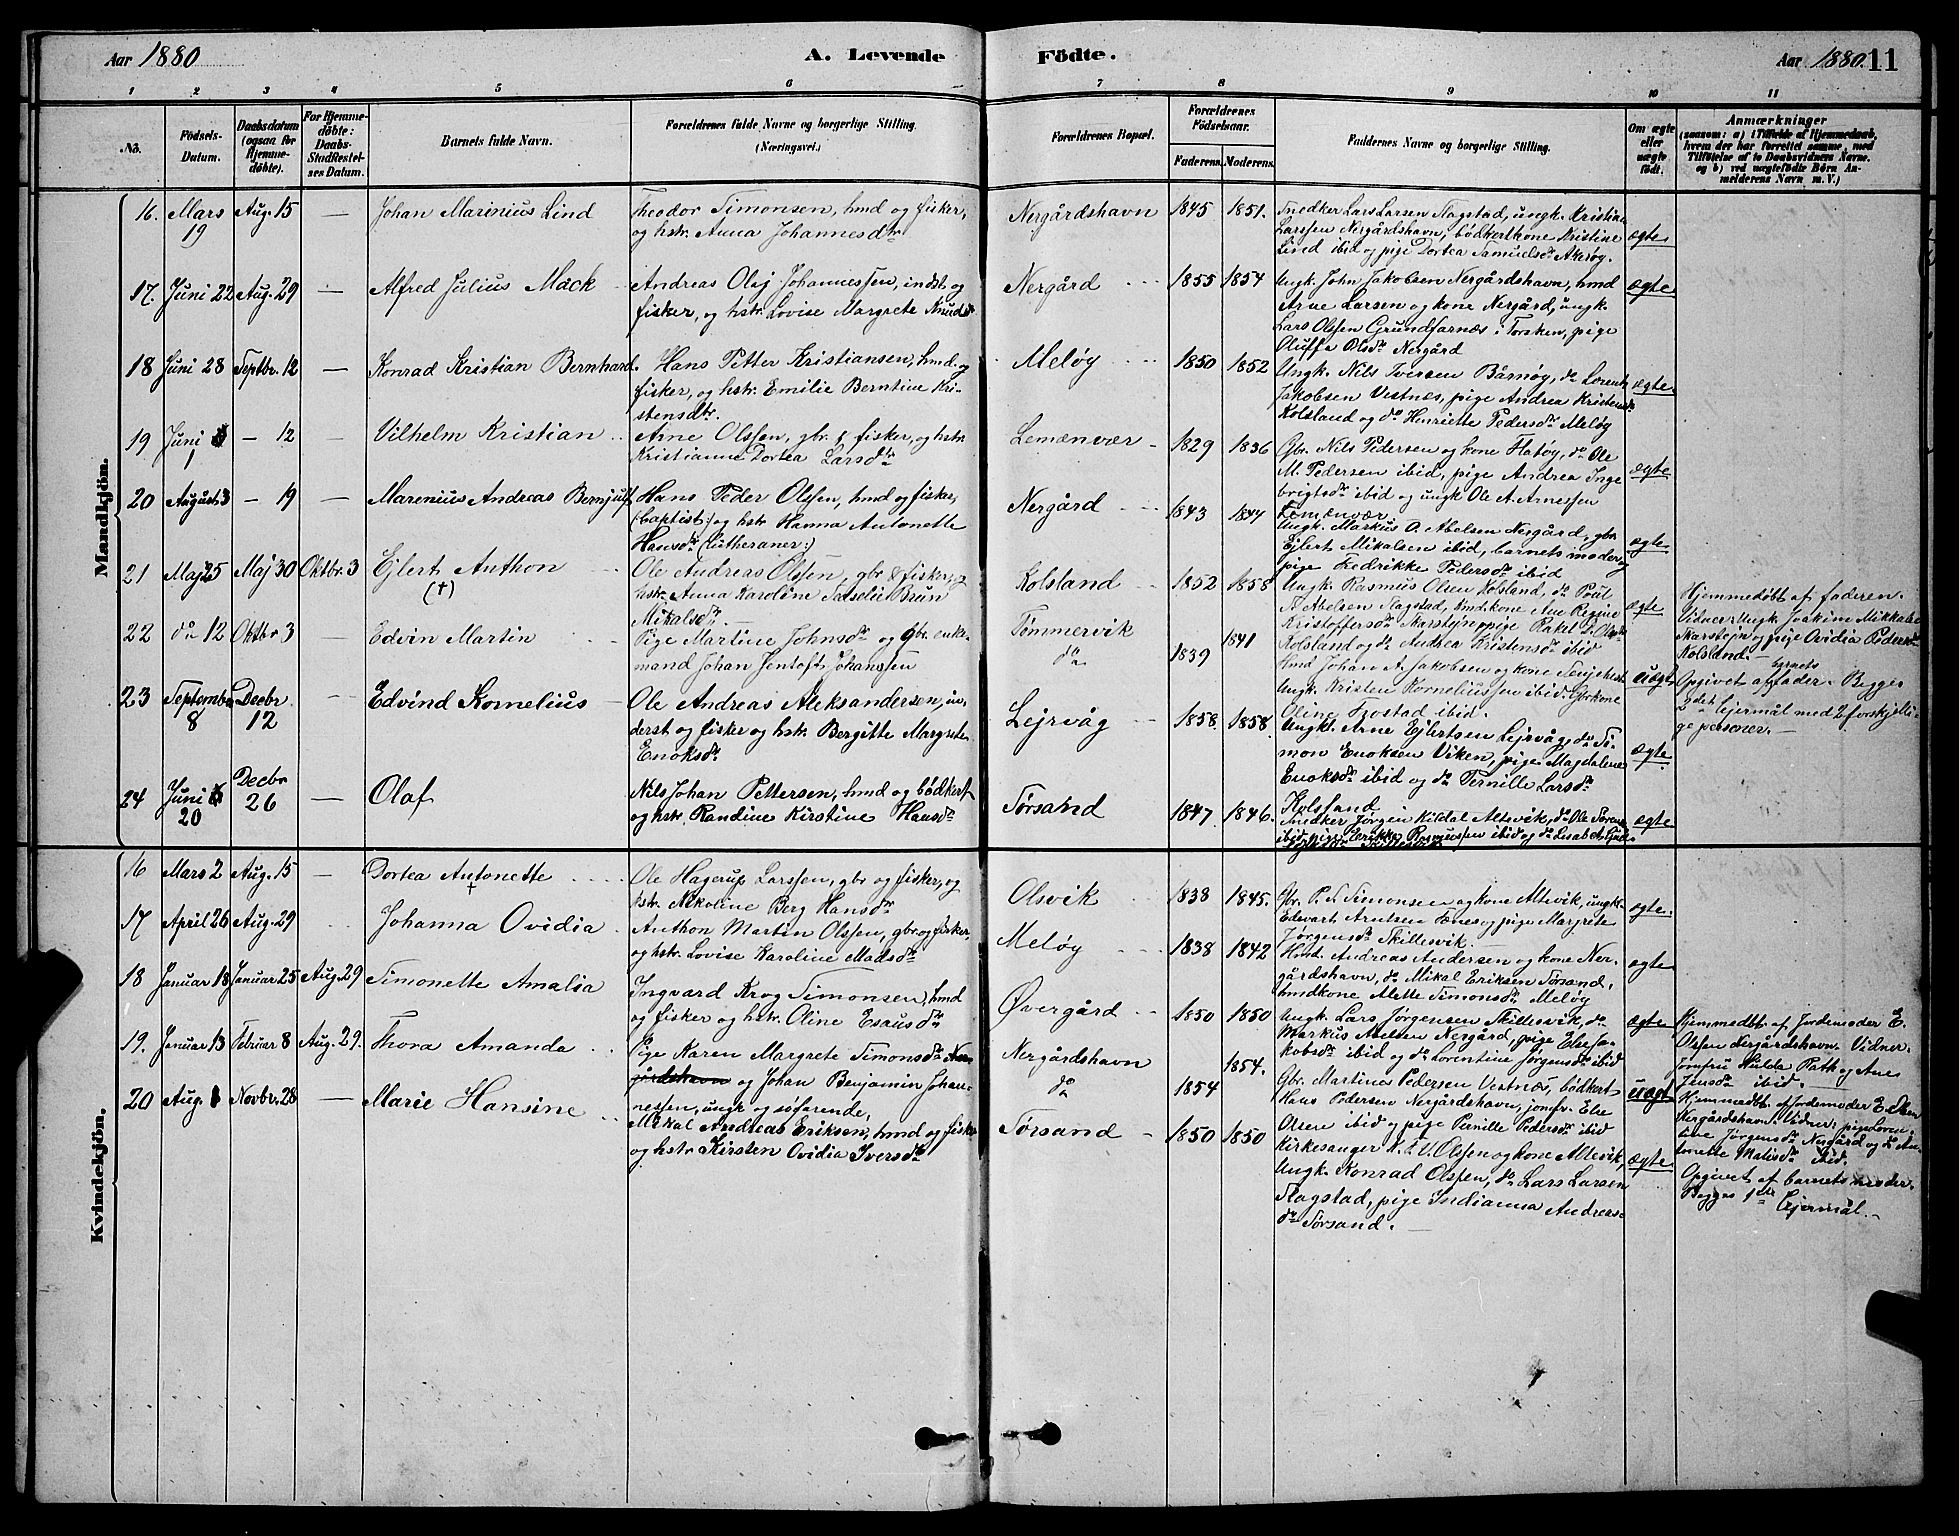 Aar 1880 A. Levende Fødte. Aar 1880. 11
1 2 3 4 5 6 7 8 9 10 11
No. Fødsels-Datum. Daabsdatum (ogsaa for Hjemmedøbte). For Hjemmedøbte: Daabs-Stadfæstelses Datum. Barnets fulde Navn. Forældrenes fulde Navne og borgerlige Stilling. (Næringsvei.) Forældrenes Bopæl. Forældrenes Fødselsaar. Faderens. Moderens. Faddernes Navne og borgerlige Stilling. Om ægte eller uægte født. Anmærkninger
(saasom: a) i Tilfælde af Hjemmedaab, hvem der har forrettet samme, med Tilføielse af to Daabsvidners Navne. og b) ved uægtefødte Børn Anmelderens Navn m. V.)
Mandkjøn.
16. Mars 19 Aug. 15 — Johan Marinius Lind
Theodor Simonsen, hmd og fisker,
og hstr. Anna Johannesdtr
Nergårdshavn 1845 1851.
Snedker Lars Larsen Flagstad, ungk. Kristian
Larssen Nergårdshavn, bødkerkone Kristine
Lind ibid og pige Dortea Samuelsdr Akerøy.
ægte
17. Juni 22 Aug. 29 — Alfred Julius Mack
Andreas Olaj Johannessen, indst og
fisker, og hstr. Lovise Margrete Knudsdr
Nergård 1855 1854
Ungk. John Jakobsen Nergårdshavn, hmd
Arne Larsen og kone Nergård, ungk.
Lars Olsen Grundfarnæs i Torsken, pige
Oluffa Olsdr Nergård
ægte
18 Juni 28 Septbr. 12 — Konrad Kristian Bernhard.
Hans Petter Kristiansen, hmd. og
fisker, og hstr. Emilie Berntine Kri-
stensdtr.
Meløy 1850 1852
Ungk. Nils Iversen Bårnøy, do Lorents
Jakobsen Vestnæs, pige Andrea Kristensdr
Kolsland og do Henriette Pedersdr Meløy
ægte
19 Juni 1 — 12 — Vilhelm Kristian
Arne Olssen, gbr. & fisker, og hstr
Kristianne Dortea Larsdtr
Lemænvær 1829 1836
Gbr. Nils Pedersen og kone Hatøy, do Ole
M. Pedersen ibid, pige Andrea Inge
brigtsdr ibid og ungk Ole A. Arnessen
Lemænvær
ægte
20 August 3 — 19 — Marenius Andreas Bernjulf
Hans Peder Olssen, hmd og fisker,
(baptist) og hstr Hanna Antonette
Hansdtr (lutheraner)
Nergård 1843 1847
Ungk. Markus O. Abelsen Nergård, gbr.
Ejlert Mikalsen ibid, barnets moder og
pige Fredrikke Pedersdr ibid
ægte
21 Maj 25 Maj 30 Oktbr. 3 Ejlert Anthon
(†)
Ole Andreas Olssen, gbr & fisker, og
hstr. Anna Karoline Brun
Mikalsdr
Kolsland 1852 1858
Ungk. Rasmus Olsen Kolsland, do Poul
A. Abelsen Flagstad, hmdkone Ane Regine
Kristoffersdr Skarstejn, pige Rakel P. Olsdr
Kolsland og do Andrea Kristensdr ibid
ægte
Hjemmedøbt af faderen.
Vidner: Ungk. Joakim Mikkalsen
Skarstejn og pige Ovidia Pedersdr
Kolsland. —
22 do 12 Oktbr 3 Edvin Martin
Pige Martine Johnsdr og Gbr. enke-
mand Johan Jentoft Johanssen
Tømmervik
do
1839 1841
Hmd Johan A. Jakobsen og kone
Ungk. Kristen Korneliussen ibid. Gbrkone
Oline Frostad ibid.
uægte
Opgivet af barnets fader. Begges
2det lejermål med 2 forskjelli-
ge personer. —
23 September 8 Decbr 12 — Edvind Kornelius
Ole Andreas Aleksandersen, in-
derst og fisker og hstr. Bergitte Margrete
Enoksdr
Lejrvåg 1858. 1858.
Ungk. Arne Ejlertsen Lejrvåg, do Si-
mon Enoksen Viken, pige Magdalene
Enoksdr ibid og do Pernille Larsdr
Kolsland
ægte
24 Juni 20 Decbr 26 — Olaf
Nils Johan Pettersen, hmd og bødker
og hstr. Randine Kirstine Hansdr
Sørsand 1847. 1846.
Snedker Jørgen Kildal Altevik, do Ole Søren
ægte
Kvindekjøn.
16 Mars 2 Aug. 15 — Dortea Antonette
†
Ole Hagerup Larssen, gbr og fisker, og
hstr. Nikoline Berg Hansdtr
Olsvik 1838 1845.
Gbr. P. S. Simonsen og kone Altevik, ungk.
Edevart Arntsen Fanes og pige Margrete
Jørgensdr Skillesvik. —
ægte.
17 April 26 Aug. 29 Johanna Ovidia
Anthon Martin Olssen, gbr. og fisker,
og hstr. Lovise Karoline Madsdr
Meløy 1838 1842
Hmd. Andreas Andersen og kone Ner-
gårdshavn, do Mikal Eriksen Sørsand,
hmdkone Mette Simonsdr Meløy
ægte
18 Januar 18 Januar 25 Aug. 29 Simonette Amalia
Ingvard Krog Simonsen, hmd
og fisker og hstr. Oline Esausdtr
Øvergård 1850 1850
Ungk. Lars Jørgensen Skillesvik, do
Markus Abelsen Nergård, pige Else Ja-
kobsdr ibid og do Lorentine Jørgensdr ibid
ægte
Hjemmedbt. af Jordemoder E.
Olssen Nergårdshavn. Vidner:
Jomfru Hulda Rath og Ane
Jensdr ibid. —
19. Januar 13 Februar 8 Aug. 29. Thora Amanda
Pige Karen Margrete Simonsdtr Ner-
gårdshavn og Johan Benjamin Johan-
nessen, ungk og søfarende,
Nergårdshavn
do
1854 1854.
Gbr. Martinus Pedersen Vestnæs, bødker
Hans Pedersen Nergårdshavn, jomfr. Else
Olsen ibid og pige Pernille Pedersdr ibid
uægt
Hjemmedbt. af Jordemoder E. Olsen
Nergårdshavn. Vidner: pige Loren-
tine Jørgensdr Nergård og do An-
tonette Matisdr ibid.
Opgivet af barnets moder.
Begges 1ste Lejermål. —
20 Aug. 1 Novbr. 28 — Marie Hansine
Mikal Andreas Eriksen, hmd og fisker
og hstr. Kirsten Ovidia Iversdtr
Sørsand 1850 1850
Kirkesanger H. T. V. Olssen og kone Altevik,
Ungk. Konrad Olssen, do Lars Larsen
Flagstad, pige Indianna Andreas-
dr Sørsand. —
ægte.